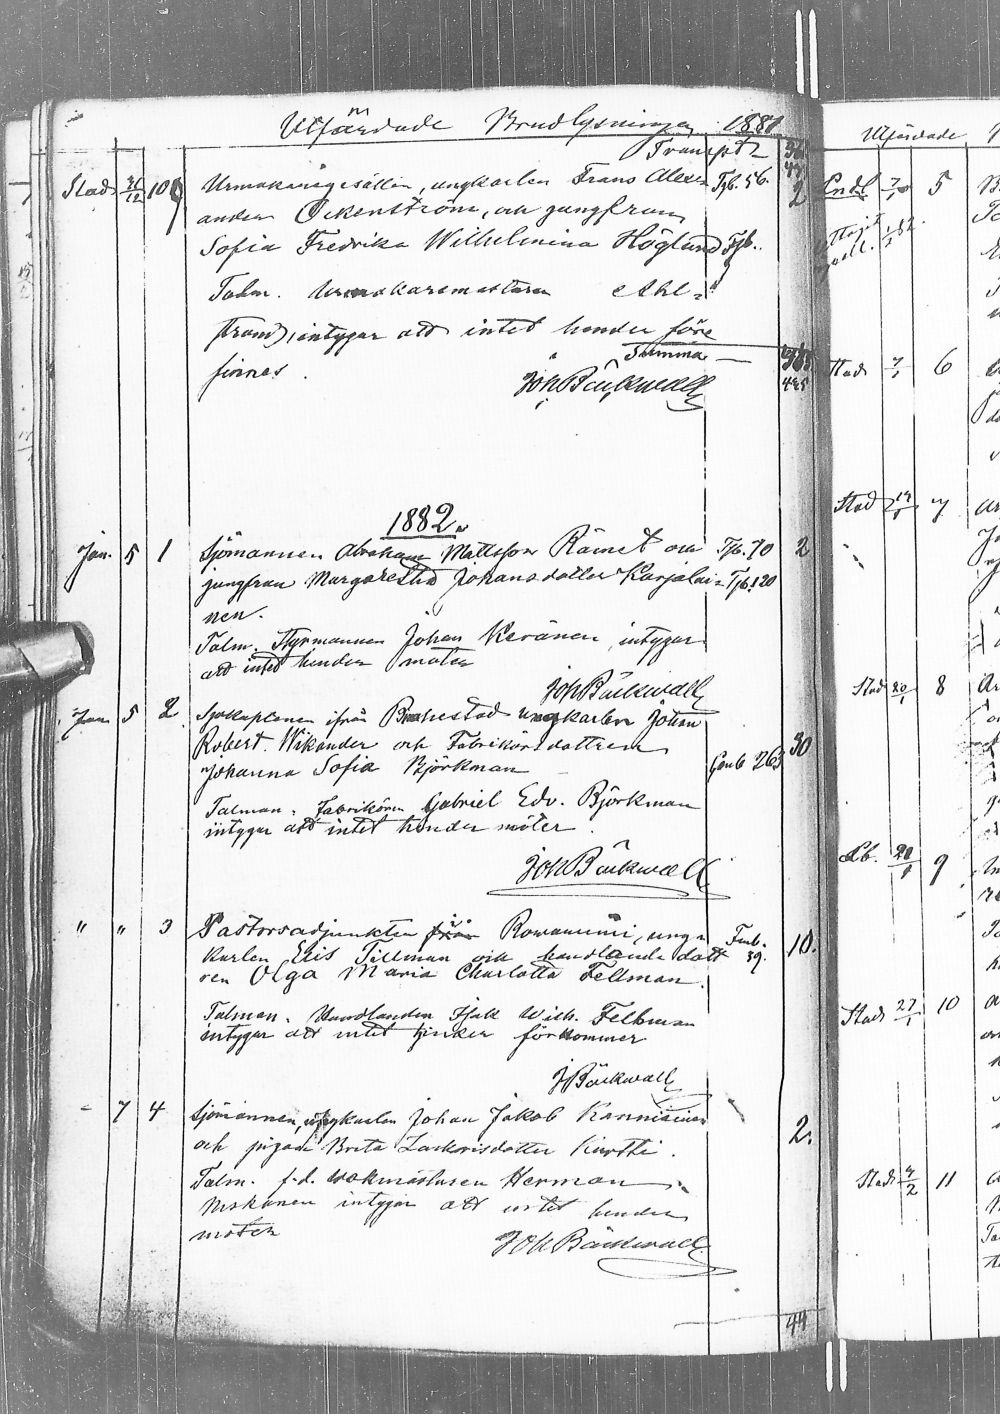 Utfärdade Brudlysningar 1881
Transpt
Stad 31/12 109 Urmakaregesällen, ungkarlen Frans Alex- Tjb. 56. 2
ander Öckenström, och jungfrun
Sofia Fredrika Wilhelmina Höglund Tjb.
Talm. Urmakaremästaren Ahl-
strand, intygar att intet hender före
Summa
finnes.
Joh Bäckwall
1882.
Jan. 5 1 Sjömannen Abraham Mattsson Rämet och Tjb. 70 2
jungfrun Margaretha Johansdotter Karjalai- Tjb. 120
nen.
Talm. Styrmannen Johan Keränen, intygar
att intet hinder möter
Joh Bäckwall
Jan 5 2 Sjökaptenen ifrån Brahestad ungkarlen Johan
Robert Wikander och Fabrikörsdottren 30
Johanna Sofia Björkman 263
Talman. Fabrikören Gabriel Edv. Björkman
intygar att intet hender möter.
Joh Bäckwall
" " 3 Pastorsadjunkten i Rowaniemi, ung- 10.
karlen Elis Tillman och handlande dott 39.
ren Olga Maria Charlotta Fellman.
Talman. Handlanden Isak Wilh. Fellman
intygar att intet hinder förekommer
J Bäckwall
- 7 4 Sjömannen, ungkarlen Johan Jakob Kanniainen
och pigan Brita Zackarisdotter Kurtti. 2.
Talm. f.d. wakmästaren Herman
Niskanen intygar att intet hender
möter
Joh Bäckwall
44
Utfärdade
5
Stad 7/1 6
Stad 14/1 7
Stad 20/1 8
9
Stad 27/1 10
Stad 11